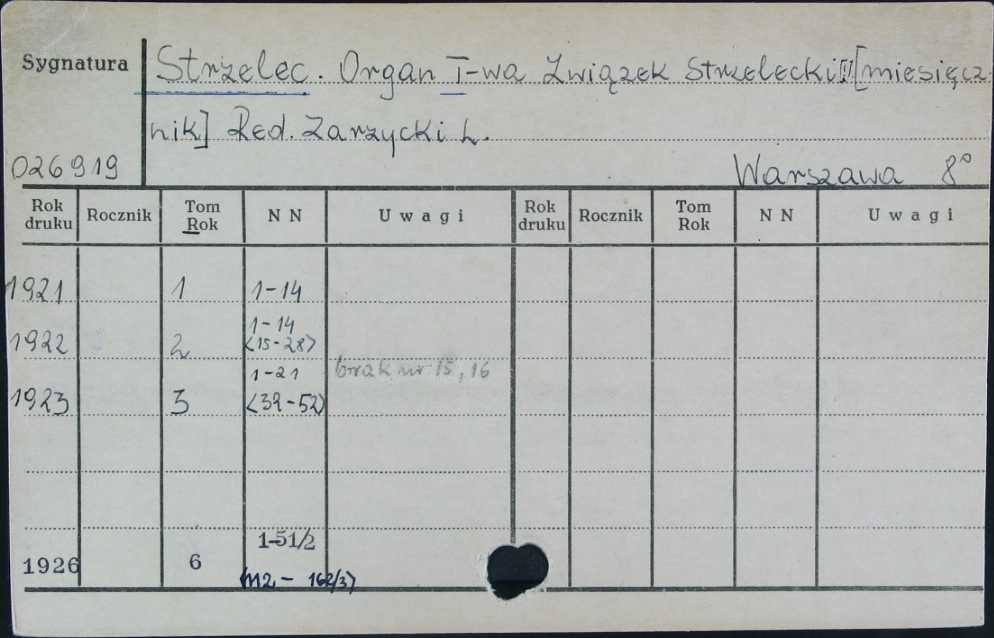 Sygnatura
Strzelec. Organ T-wa Związek Strzelecki [miesięcz-
nik] Red. Zarzycki L.
026919
Warszawa 8°
Rok druku Rocznik Tom Rok N N Uwagi Rok druku Rocznik Tom Rok N N Uwagi
1921 1 1-14
1922 2 1-14 <15-28>
1923 3 1-21 <32-52> brak nr 15, 16
1926 6 1-51/2 <112 - 162/3>